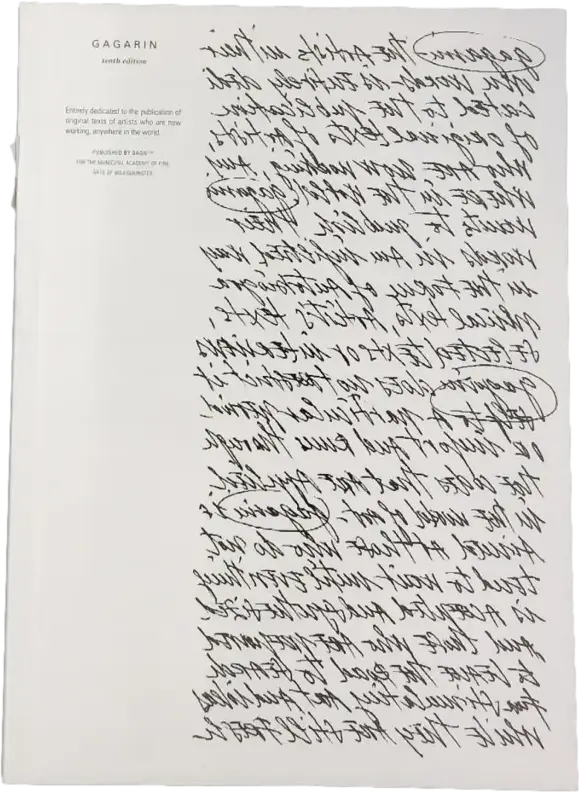 GAGARIN
tenth edition
Entirely dedicated to the publication of
original texts of artists who are now
working, anywhere in the world.
PUBLISHED BY GAGA
FOR THE MUNICIPAL ACADEMY OF FINE
ARTS OF
gagarin the Artists in their
own words is entirely dedi
cated to the publication
of original texts of artists
who are now working, any
where in the world. gagarin
wants to publish their
words in an unfiltered way
in the form of autobiogra
phical texts, artist's texts,
selected texts or interviews
gagarin does not restrict it
self to a particular opinion
or support and runs through
the codes that are applied
in the world of art. gagarin is
aimed at those who do not
tend to wait until everything
is accepted and
and those who are prepared
to leave the road to
stimulating art and ideas
while they are still fresh.